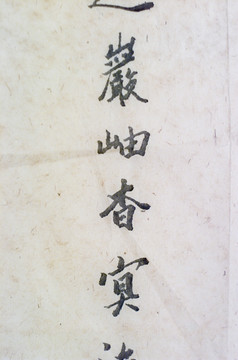 巖岫杳冥